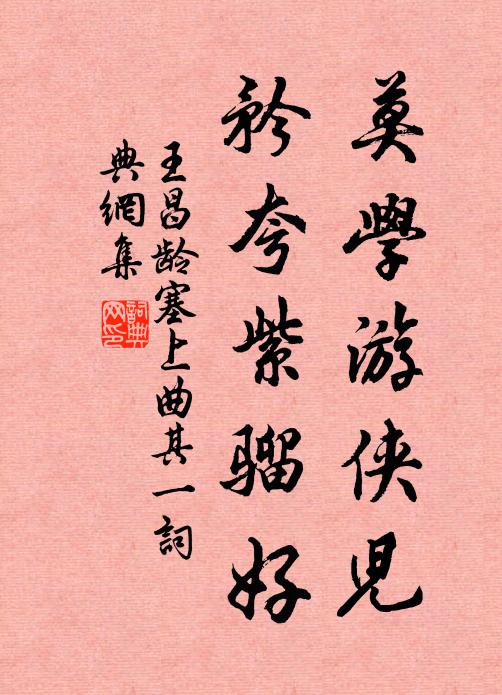 莫學游侠兒
矜夸紫骝好
王昌龄塞上曲其一詞
典網集
詞典
网印